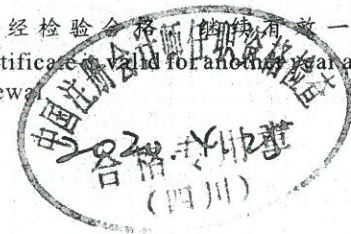 经检验合格，继续有效一
tificate is valid for another year a
ewal
中国注册会计师任职资格检查
合格专用章
(四川)